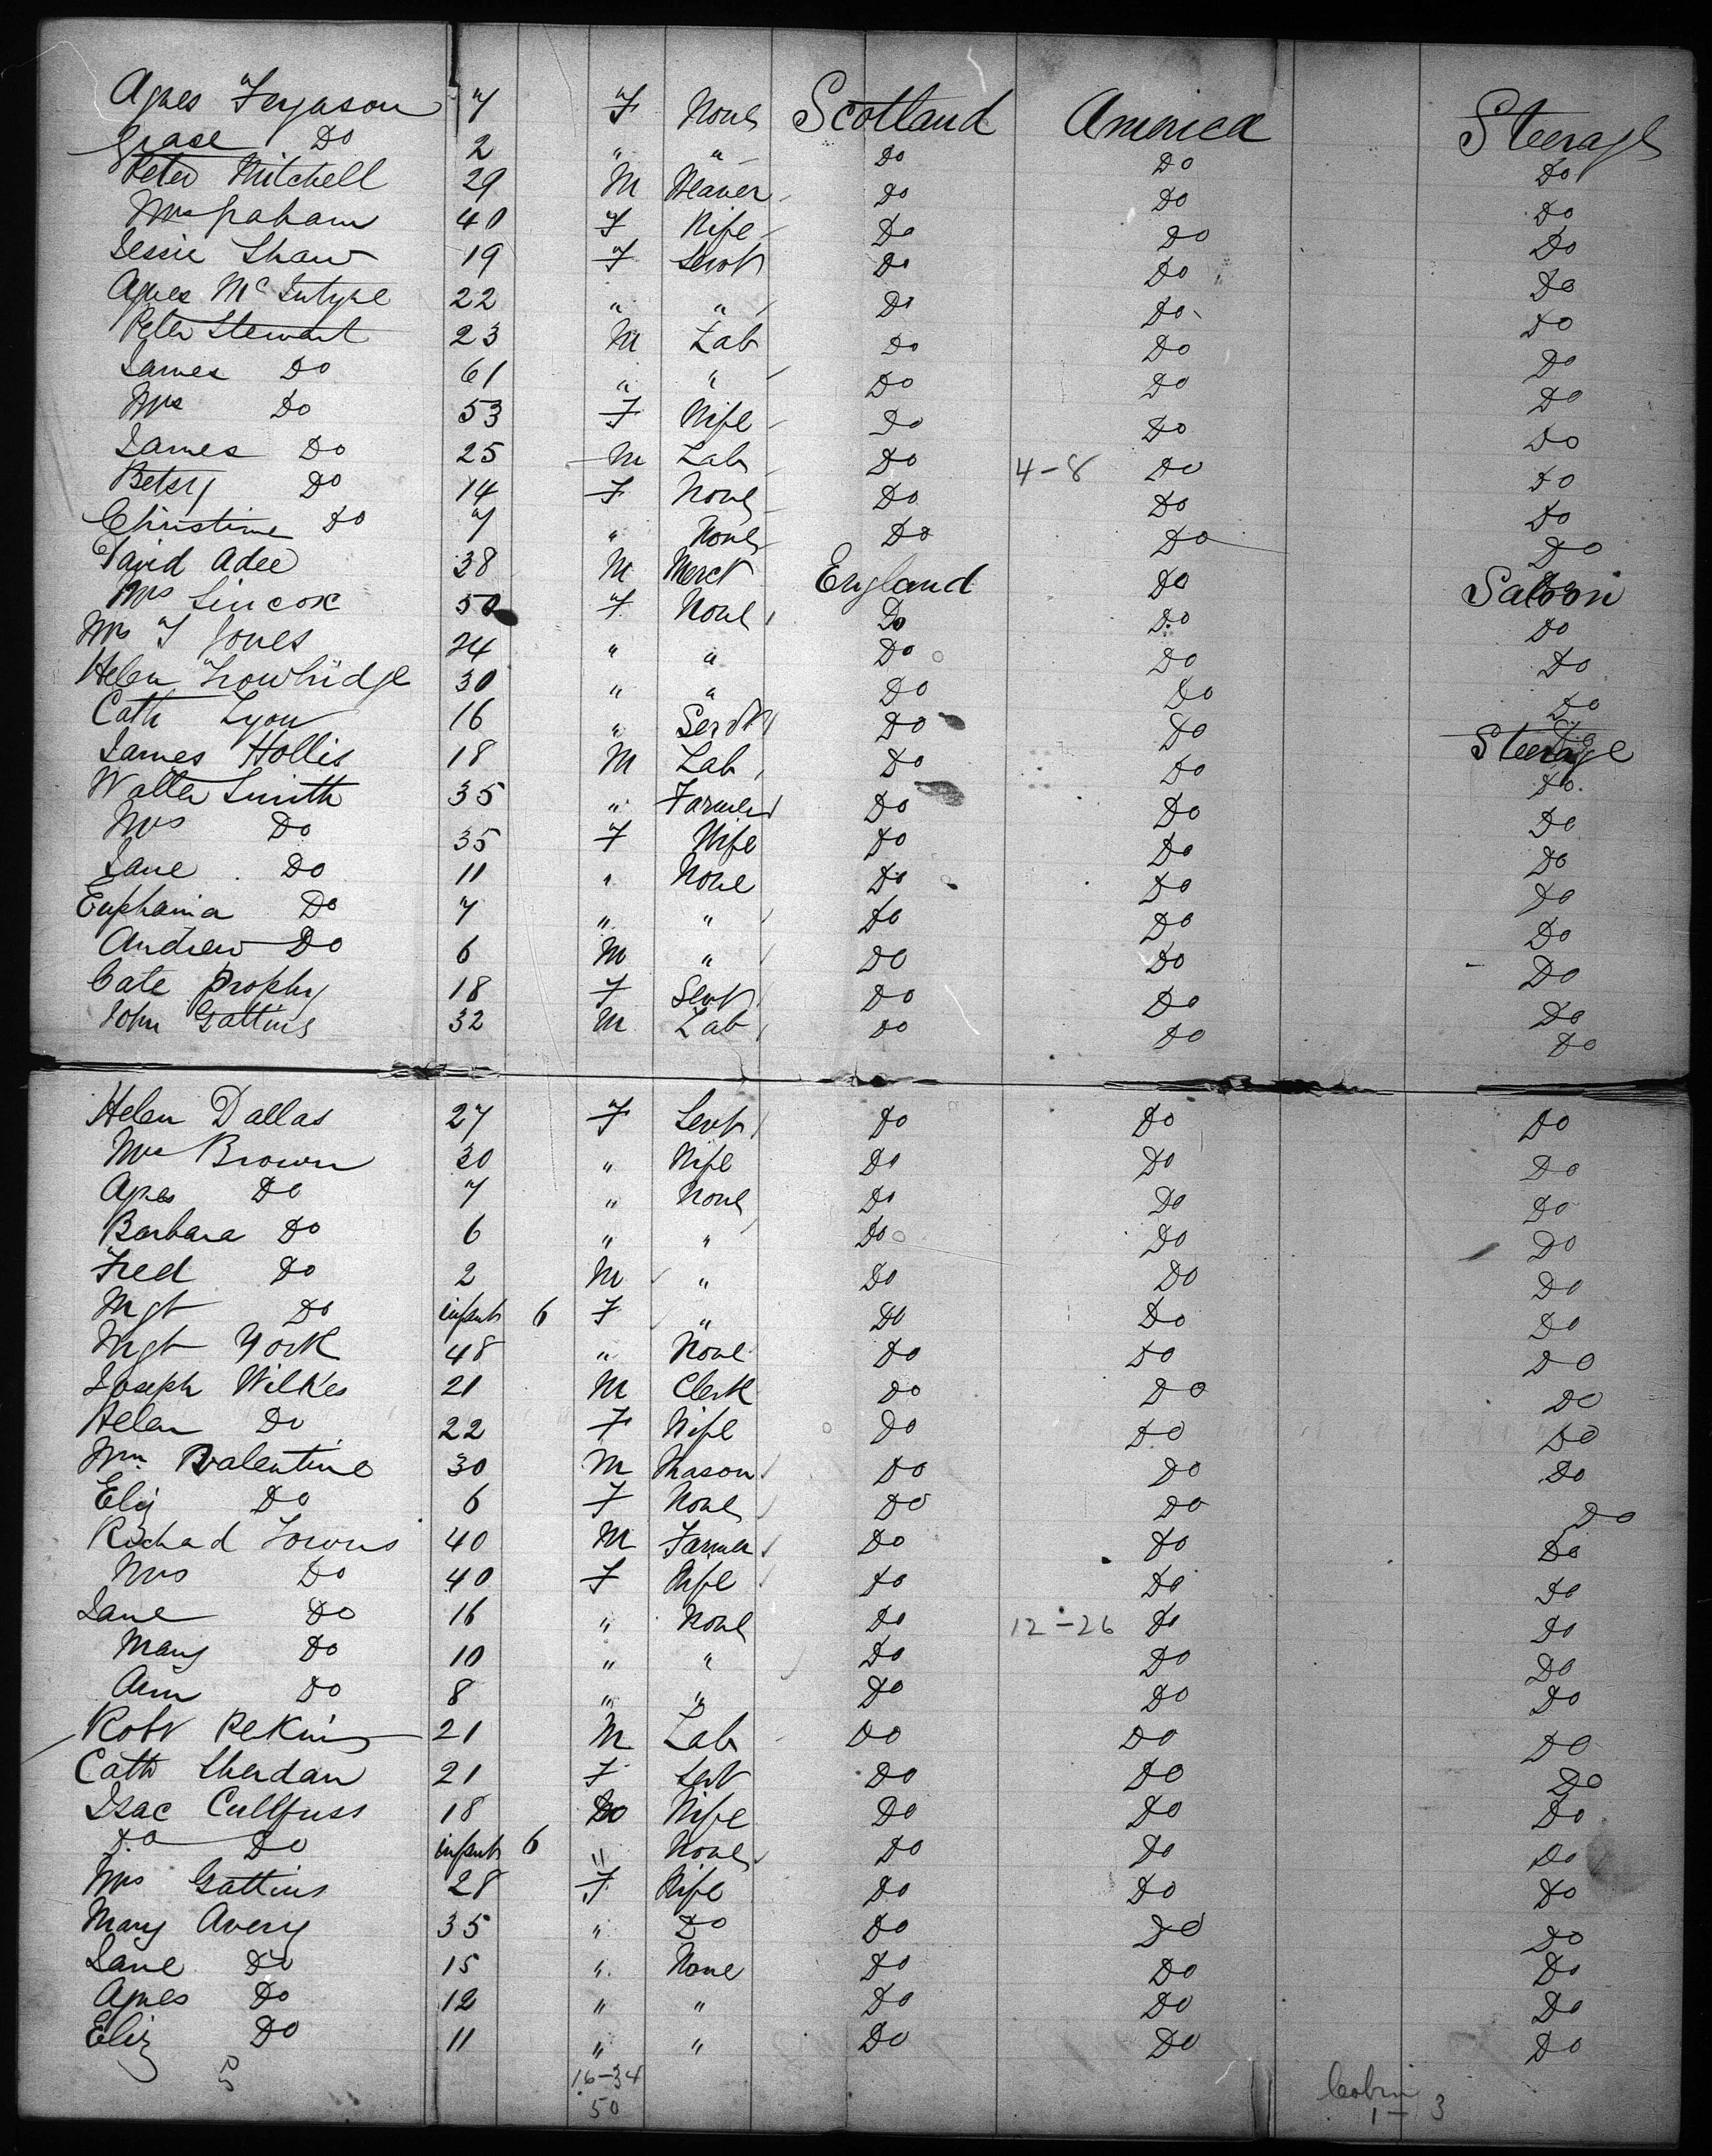 Agnes Ferguson 7 F None Scotland America Steerage
Grace Do 2 " " Do Do Do
Peter Mitchell 29 M Weaver Do Do Do
Mrs Graham 40 F Wife Do Do Do
Jessie Shaw 19 F Servt Do Do Do
Agnes McIntyre 22 " " Do Do Do
Peter Stewart 23 M Lab Do Do Do
James Do 61 " " Do Do Do
Mrs Do 53 F Wife Do Do Do
James Do 25 M Lab Do 4-8 Do Do
Betsy Do 14 F None Do Do Do
Christine Do 7 " None Do Do Do
David Adee 38 M Merct England Do Saloon
Mrs Lincox 50 F None Do Do Do
Mrs F Jones 24 " " Do Do Do
Helen Trowbridge 30 " " Do Do Do
Cath Lyon 16 " Servt Do Do Steerage
James Hollis 18 M Lab Do Do Do
Walter Smith 35 " Farmer Do Do Do
Mrs Do 35 F Wife Do Do Do
Jane Do 11 " None Do Do Do
Euphamia Do 7 " " Do Do Do
Andrew Do 6 M " Do Do Do
Cate Brophy 18 F Servt Do Do Do
John Gattins 32 M Lab Do Do Do
Helen Dallas 27 F Servt Do Do Do
Mrs Brown 30 " Wife Do Do Do
Agnes Do 7 " None Do Do Do
Barbara Do 6 " " Do Do Do
Fred Do 2 M " Do Do Do
Mgt Do infant 6 F " Do Do Do
Mgt York 48 " None Do Do Do
Joseph Wilkes 21 M Clerk Do Do Do
Helen Do 22 F Wife Do Do Do
Wm Valentine 30 M Mason Do Do Do
Eliz Do 6 F None Do Do Do
Richad Towns 40 M Farmer Do Do Do
Mrs Do 40 F Wife Do Do Do
Jane Do 16 " None Do 12-26 Do Do
Mary Do 10 " " Do Do Do
Ann Do 8 " " Do Do Do
Robt Pekins 21 M Lab Do Do Do
Cath Sherdan 21 F Servt Do Do Do
Isac Cullfuss 18 Do Wife Do Do Do
Do Do infant 6 " None Do Do Do
Mrs Gattins 28 F Wife Do Do Do
Mary Avery 35 " Do Do Do Do
Jane Do 15 " None Do Do Do
Agnes Do 12 " " Do Do Do
Eliz Do 11 " " Do Do Do
16-34
50
Cabin
1-3